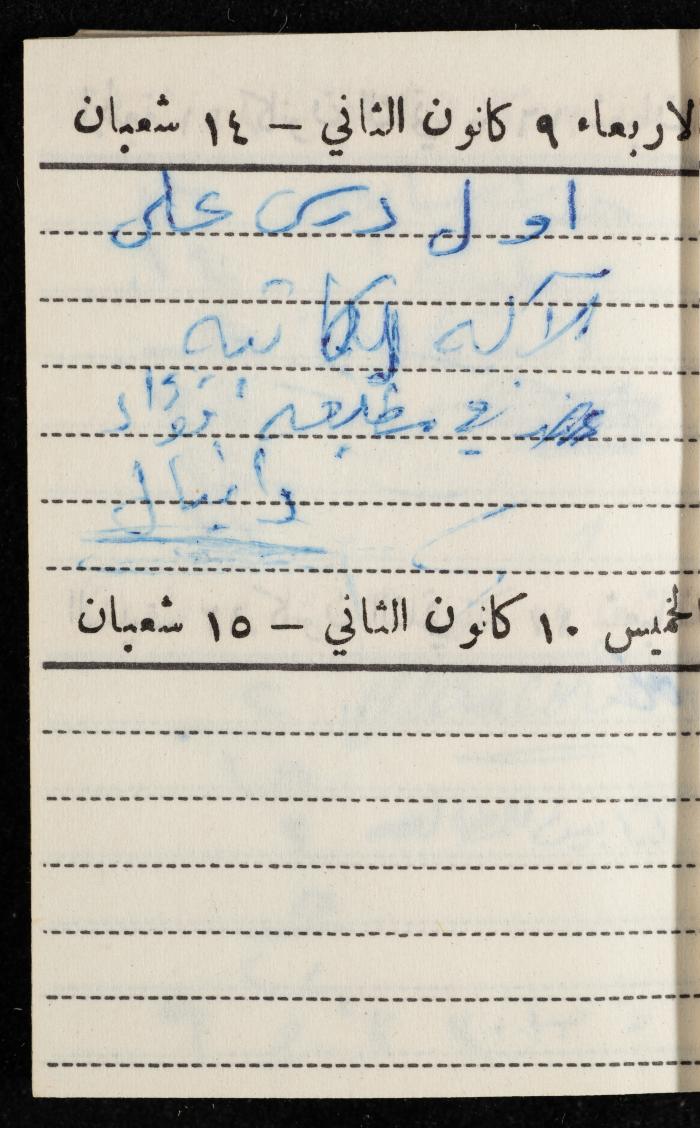 الاربعاء ٩ كانون الثاني – ١٤ شعبان
اول درس على
الآله الكاتبه
في مطبعه فؤاد
دانيال
الخميس ١٠ كانون الثاني – ١٥ شعبان